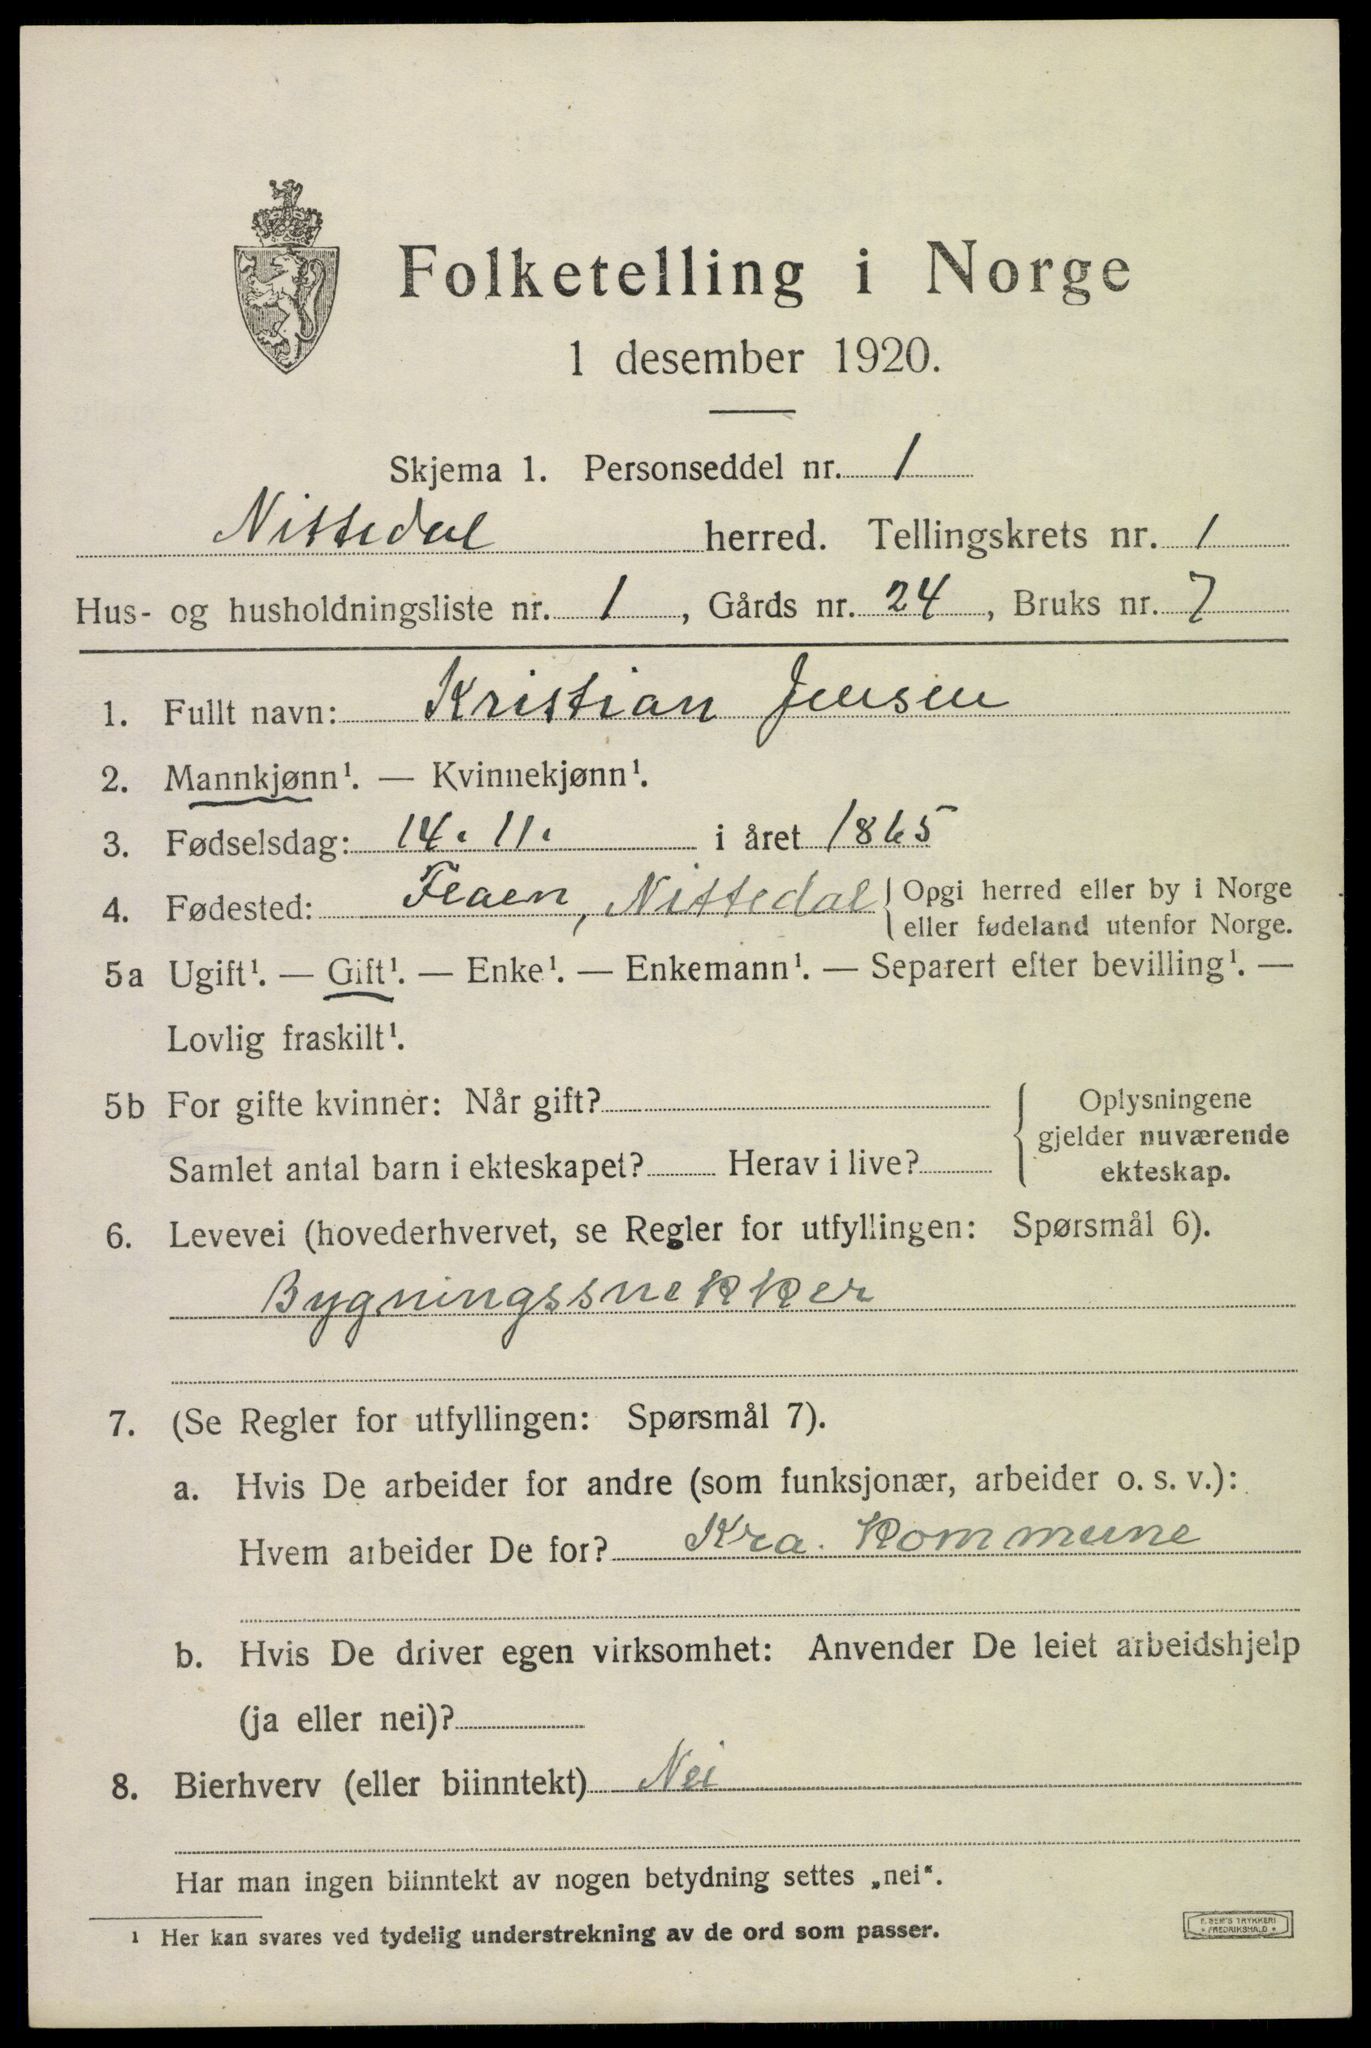 Folketelling i Norge
1 desember 1920.
Skjema 1. Personseddel nr. 1
Nittedal herred. Tellingskrets nr. 1
Hus- og husholdningsliste nr. 1, Gårds nr. 24, Bruks nr. 7
1. Fullt navn: Kristian Jensen
2. Mannkjønn¹. — Kvinnekjønn¹.
3. Fødselsdag: 14. 11. i året 1865
4. Fødested: Flaen, Nittedal { Opgi herred eller by i Norge
eller fødeland utenfor Norge.
5a Ugift¹. — Gift¹. — Enke¹. — Enkemann¹. — Separert efter bevilling¹. —
Lovlig fraskilt¹.
5b For gifte kvinner: Når gift?
Samlet antal barn i ekteskapet? Herav i live?
Oplysningene
gjelder nuværende
ekteskap.
6. Levevei (hovederhvervet, se Regler for utfyllingen: Spørsmål 6).
Bygningssnekker
7. (Se Regler for utfyllingen: Spørsmål 7).
a. Hvis De arbeider for andre (som funksjonær, arbeider o. s. v.):
Hvem arbeider De for? Kra. Kommune
b. Hvis De driver egen virksomhet: Anvender De leiet arbeidshjelp
(ja eller nei)?
8. Bierhverv (eller biinntekt) Nei
Har man ingen biinntekt av nogen betydning settes „nei“.
¹ Her kan svares ved tydelig understrekning av de ord som passer.
F. SEM'S TRYKKERI
* FREDRIKSHALD *